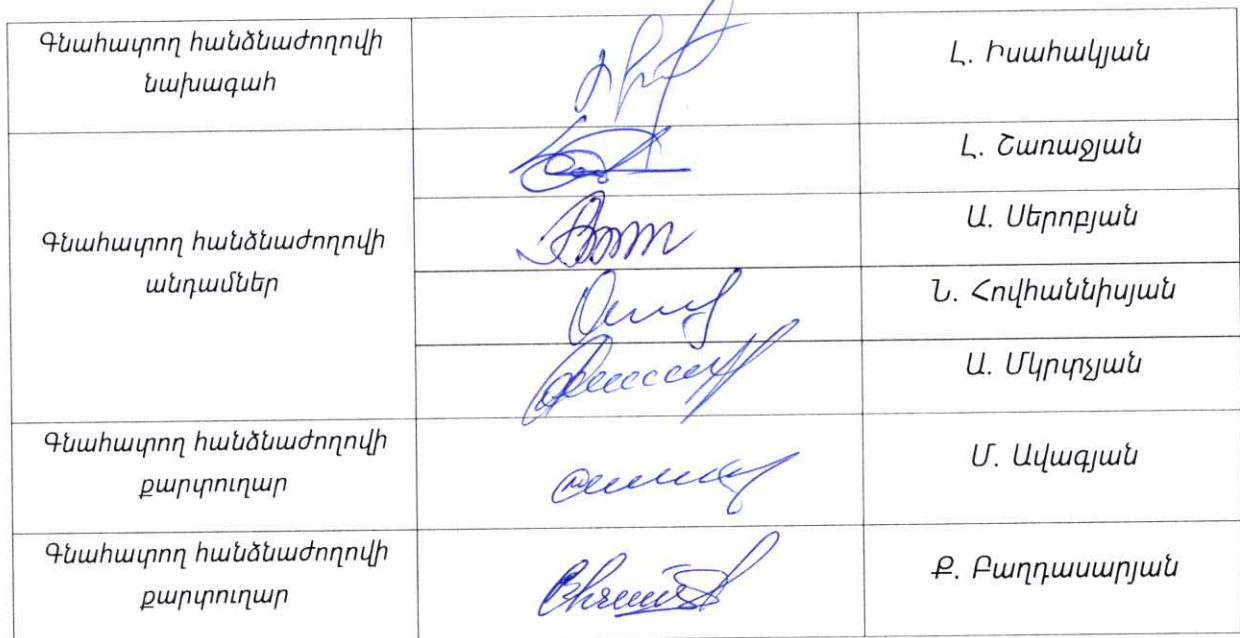 Գնահատող հանձնաժողովի
նախագահ
Լ. Իսահակյան
Գնահատող հանձնաժողովի
անդամներ
Լ. Շառաջյան
Ա. Սերոբյան
Ն. Հովհաննիսյան
Ա. Մկրտչյան
Գնահատող հանձնաժողովի
քարտուղար
Մ. Ավագյան
Գնահատող հանձնաժողովի
քարտուղար
Ք. Բաղդասարյան